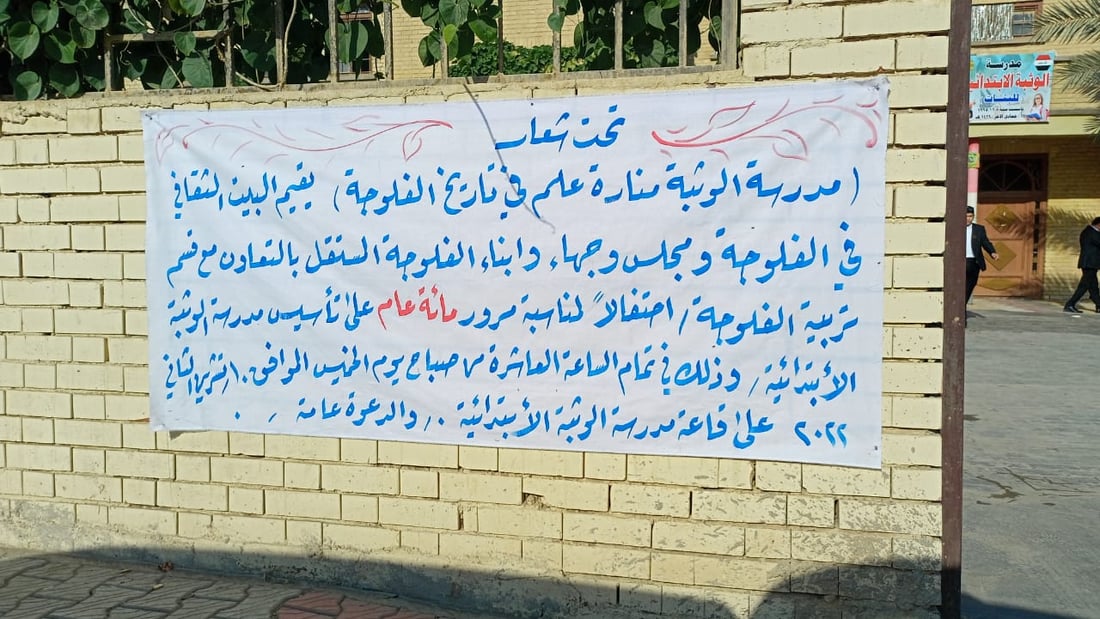 تحت شعار
(مدرسة الوثبة منارة علم في تاريخ الفلوجة) يقيم البيت الثقافي
في الفلوجة ومجلس وجهاء وابناء الفلوجة المستقل بالتعاون مع قسم
تربية الفلوجة/ احتفالاً لمناسبة مرور مائة عام على تأسيس مدرسة الوثبة
الأبتدائية/ وذلك في تمام الساعة العاشرة من صباح يوم الخميس الموافق ١٠/تشرين الثاني
٢٠٢٢ على قاعة مدرسة الوثبة الأبتدائية .. والدعوة عامة ..
مدرسة
الوثبة الابتدائية
للبنات